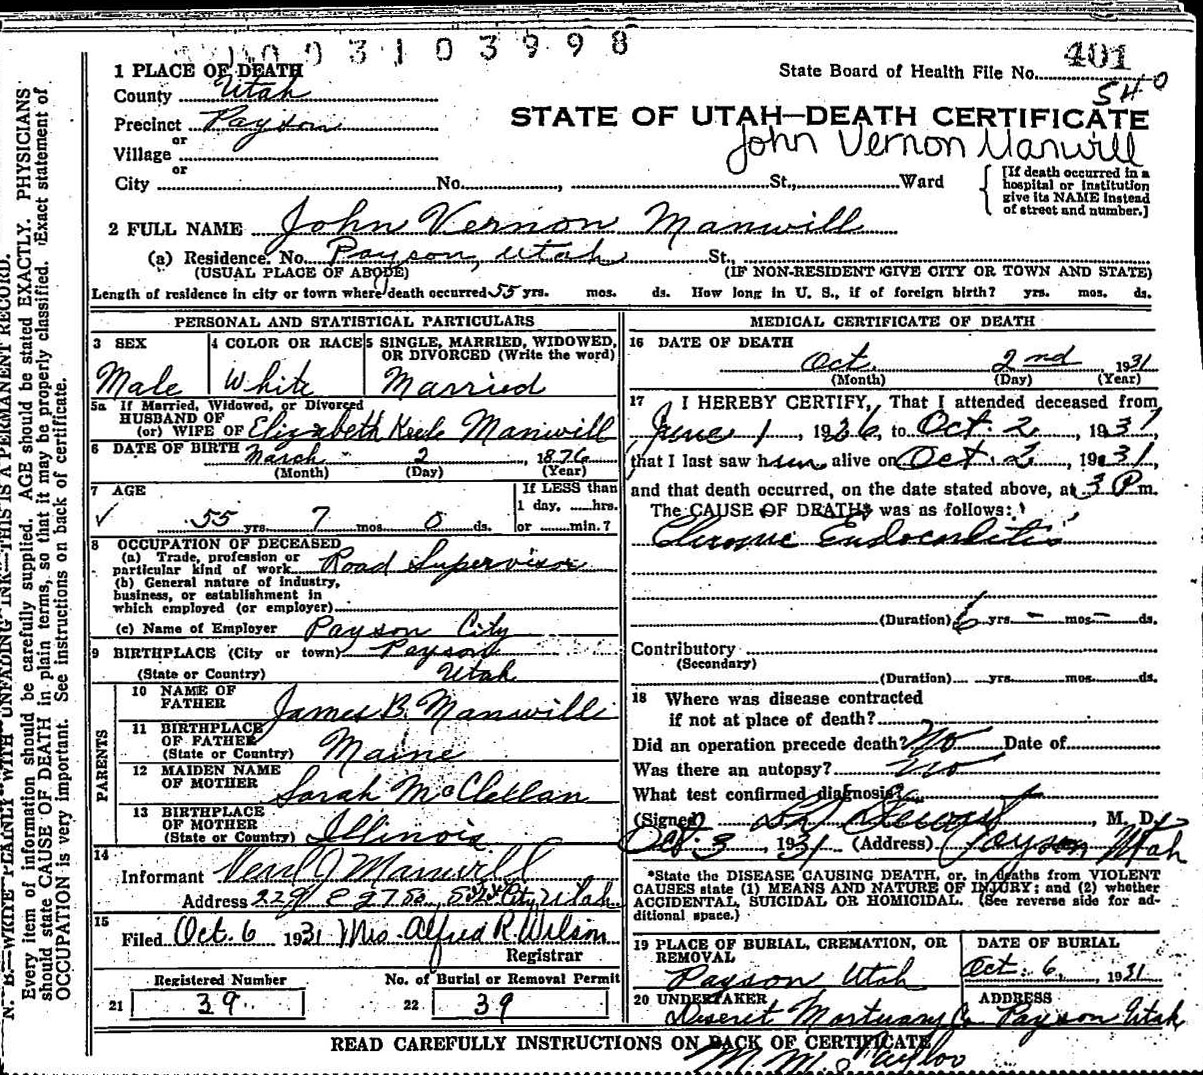 1003103998
401
540
State Board of Health File No.
1 PLACE OF DEATH
County Utah
Precinct Payson
or
Village
or
City No. , St., Ward
STATE OF UTAH—DEATH CERTIFICATE
John Vernon Manwill
[If death occurred in a
hospital or institution
give its NAME instead
of street and number.]
2 FULL NAME John Vernon Manwill
(a) Residence. No. Payson, Utah St.,
(USUAL PLACE OF ABODE) (IF NON-RESIDENT GIVE CITY OR TOWN AND STATE)
Length of residence in city or town where death occurred 55 yrs. mos. ds. How long in U. S., if of foreign birth? yrs. mos. ds.
PERSONAL AND STATISTICAL PARTICULARS
3 SEX 4 COLOR OR RACE 5 SINGLE, MARRIED, WIDOWED,
OR DIVORCED (Write the word)
Male White Married
5a If Married, Widowed, or Divorced
HUSBAND OF
(or) WIFE OF Elizabeth Keele Manwill
6 DATE OF BIRTH March 2, 1876
(Month) (Day) (Year)
7 AGE If LESS than
1 day, hrs.
55 yrs. 7 mos. 0 ds. or min.?
8 OCCUPATION OF DECEASED
(a) Trade, profession or
particular kind of work Road Supervisor
(b) General nature of industry,
business, or establishment in
which employed (or employer)
(c) Name of Employer Payson City
9 BIRTHPLACE (City or town) Payson
(State or Country) Utah
PARENTS
10 NAME OF
FATHER James B. Manwill
11 BIRTHPLACE
OF FATHER
(State or Country) Maine
12 MAIDEN NAME
OF MOTHER Sarah McClellan
13 BIRTHPLACE
OF MOTHER
(State or Country) Illinois
14
Informant Verl J Manwill
Address 229 E 2750, City Utah
15
Filed Oct. 6 1931 Mrs. Alfred R. Wilson
Registrar
Registered Number No. of Burial or Removal Permit
21 39 22 39
MEDICAL CERTIFICATE OF DEATH
16 DATE OF DEATH
Oct. 2nd 1931
(Month) (Day) (Year)
17 I HEREBY CERTIFY, That I attended deceased from
June 1, 1926, to Oct. 2, 1931,
that I last saw him alive on Oct. 2, 1931,
and that death occurred, on the date stated above, at 3 P m.
The CAUSE OF DEATH* was as follows:
Chronic Endocarditis
(Duration) 6 yrs. – mos. – ds.
Contributory
(Secondary)
(Duration) yrs. mos. ds.
18 Where was disease contracted
if not at place of death?
Did an operation precede death? No Date of
Was there an autopsy? No
What test confirmed diagnosis?
(Signed) Stewart, M. D.
Oct. 3 1931 (Address) Payson Utah
*State the DISEASE CAUSING DEATH, or, in deaths from VIOLENT
CAUSES state (1) MEANS AND NATURE OF INJURY; and (2) whether
ACCIDENTAL, SUICIDAL OR HOMICIDAL. (See reverse side for ad-
ditional space.)
19 PLACE OF BURIAL, CREMATION, OR
REMOVAL
Payson Utah
DATE OF BURIAL
Oct. 6, 1931
20 UNDERTAKER ADDRESS
Deseret Mortuary Co. Payson Utah
READ CAREFULLY INSTRUCTIONS ON BACK OF CERTIFICATE
M. M. Taylor
N. B.—WRITE PLAINLY WITH UNFADING INK—THIS IS A PERMANENT RECORD.
Every item of information should be carefully supplied. AGE should be stated EXACTLY. PHYSICIANS
should state CAUSE OF DEATH in plain terms, so that it may be properly classified. Exact statement of
OCCUPATION is very important. See instructions on back of certificate.